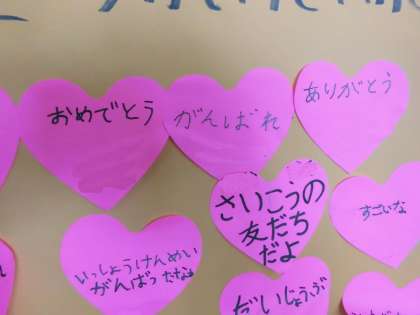 おめでとう
がんばれ
ありがとう
さいこうの
友だち
だよ
すごいな
いっしょうけんめい
がんばったね
だいじょうぶ